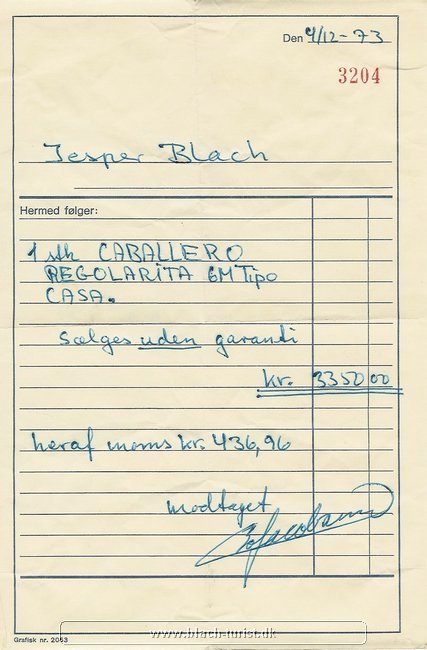 Den 4/12-73
3204
Jesper Blach
Hermed følger:
1 stk CABALLERO
REGOLARITA 6M Tipo
CASA.
sælges uden garanti
kr. 3350 00
heraf moms kr. 436,96
modtaget
Jacobsen
Grafisk nr. 2053
www.blach-turist.dk